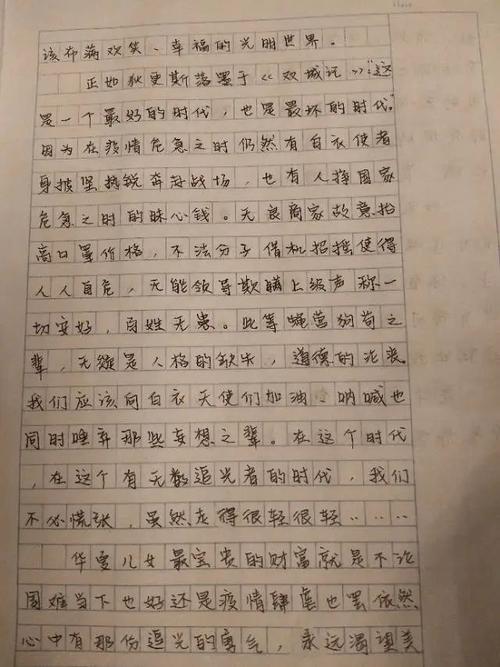 该布满欢笑、幸福的光明世界。
正如狄更斯落墨于《双城记》:"这
是一个最好的时代,也是最坏的时代。"
因为在疫情危急之时仍然有白衣使者
身披坚执锐奔赴战场,也有人挣国家
危急之时的昧心钱。无良商家故意抬
高口罩价格,不法分子借机招摇使得
人人自危,无能领导欺瞒上级声称一
切安好,百姓无患。此等蝇营狗苟之
辈,无疑是人格的缺失,道德的沦丧
我们应该向白衣天使们加油、呐喊也
同时唾弃那些妄想之辈。在这个时代
,在这个有无数追光者的时代,我们
不必慌张,虽然走得很轻很轻……
华夏儿女最宝贵的财富就是不论
困难当下也好还是疫情肆虐也罢依然
心中有那份追光的勇气,永远渴望美